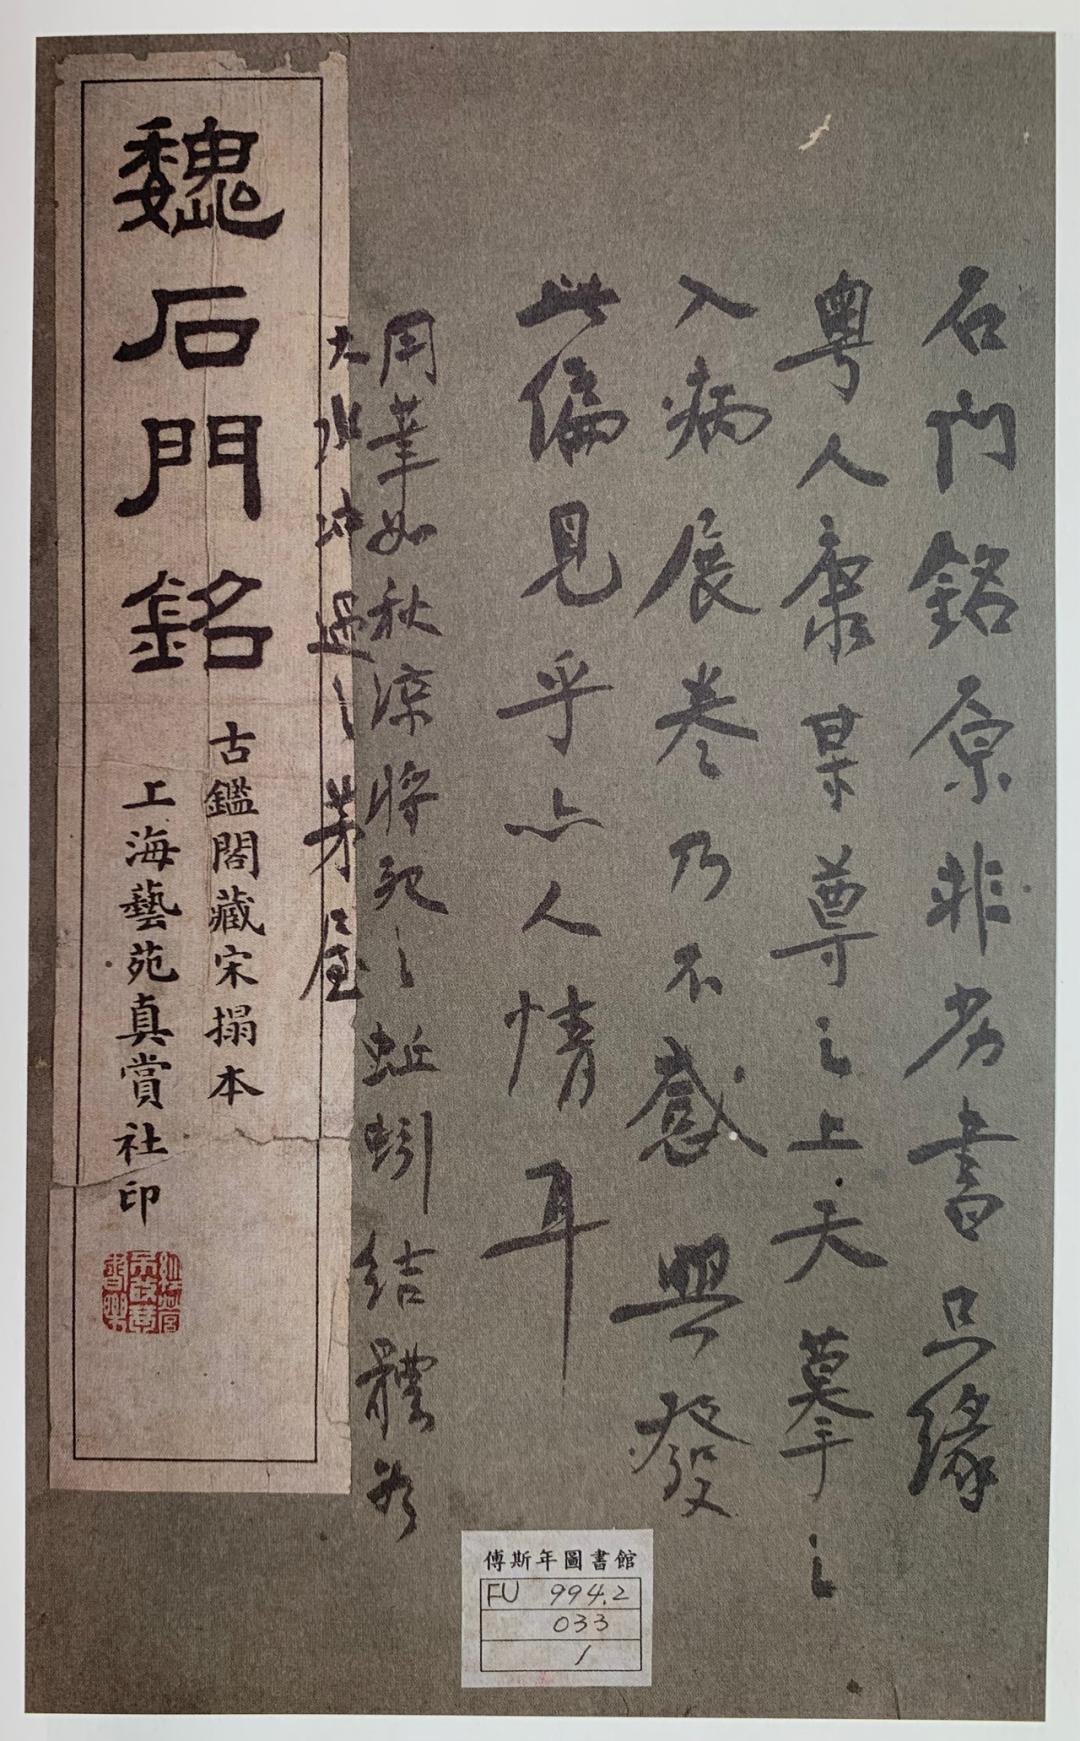 石門銘原非劣書只緣
粵人康某尊之上天摹之
入病展卷乃不感興發
此偏見乎亦人情耳
用筆如秋涼將死之蚯蚓結體如
大水冲過之茅屋
魏石門銘
古鑑閣藏宋搨本
上海藝苑真賞社印
傅斯年圖書館
FU 994.2
033
1